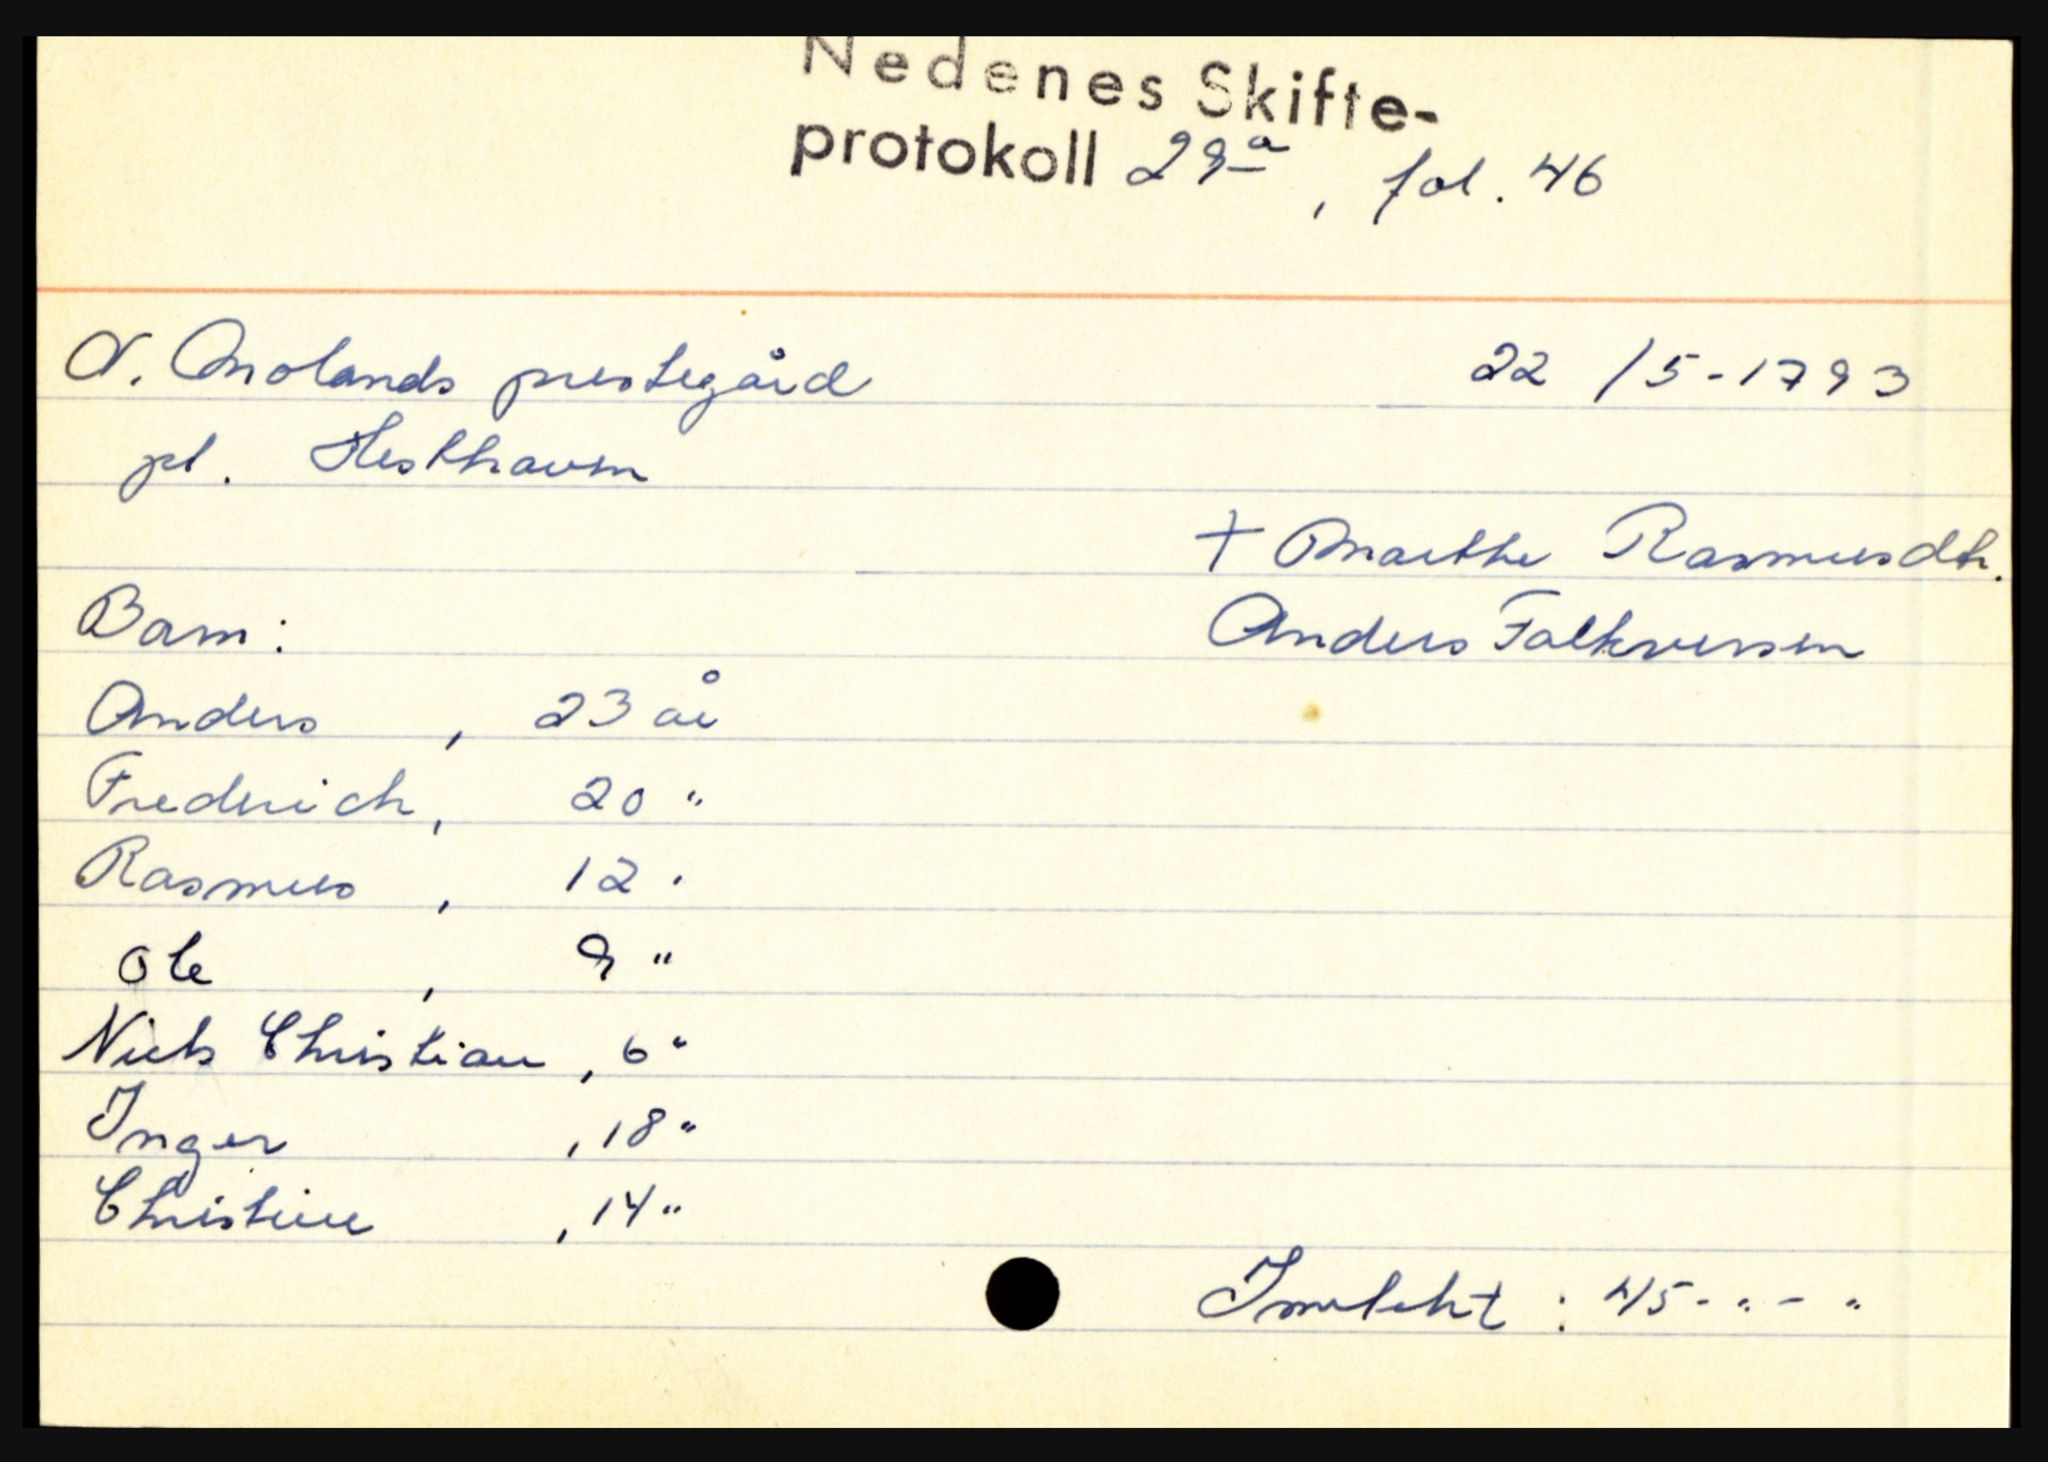 Nedenes Skifte-
protokoll 29a, fol. 46
N. Molands prestegård 22/5-1793
pl. Hesthaven
+ Marthe Rasmusdtr.
Barn: Anders Falkversen
Anders, 23 år
Frederich, 20 "
Rasmus, 12 "
Ole, 9 "
Niels Christian, 6 "
Inger, 18 "
Christine, 14 "
: 45 - " - "